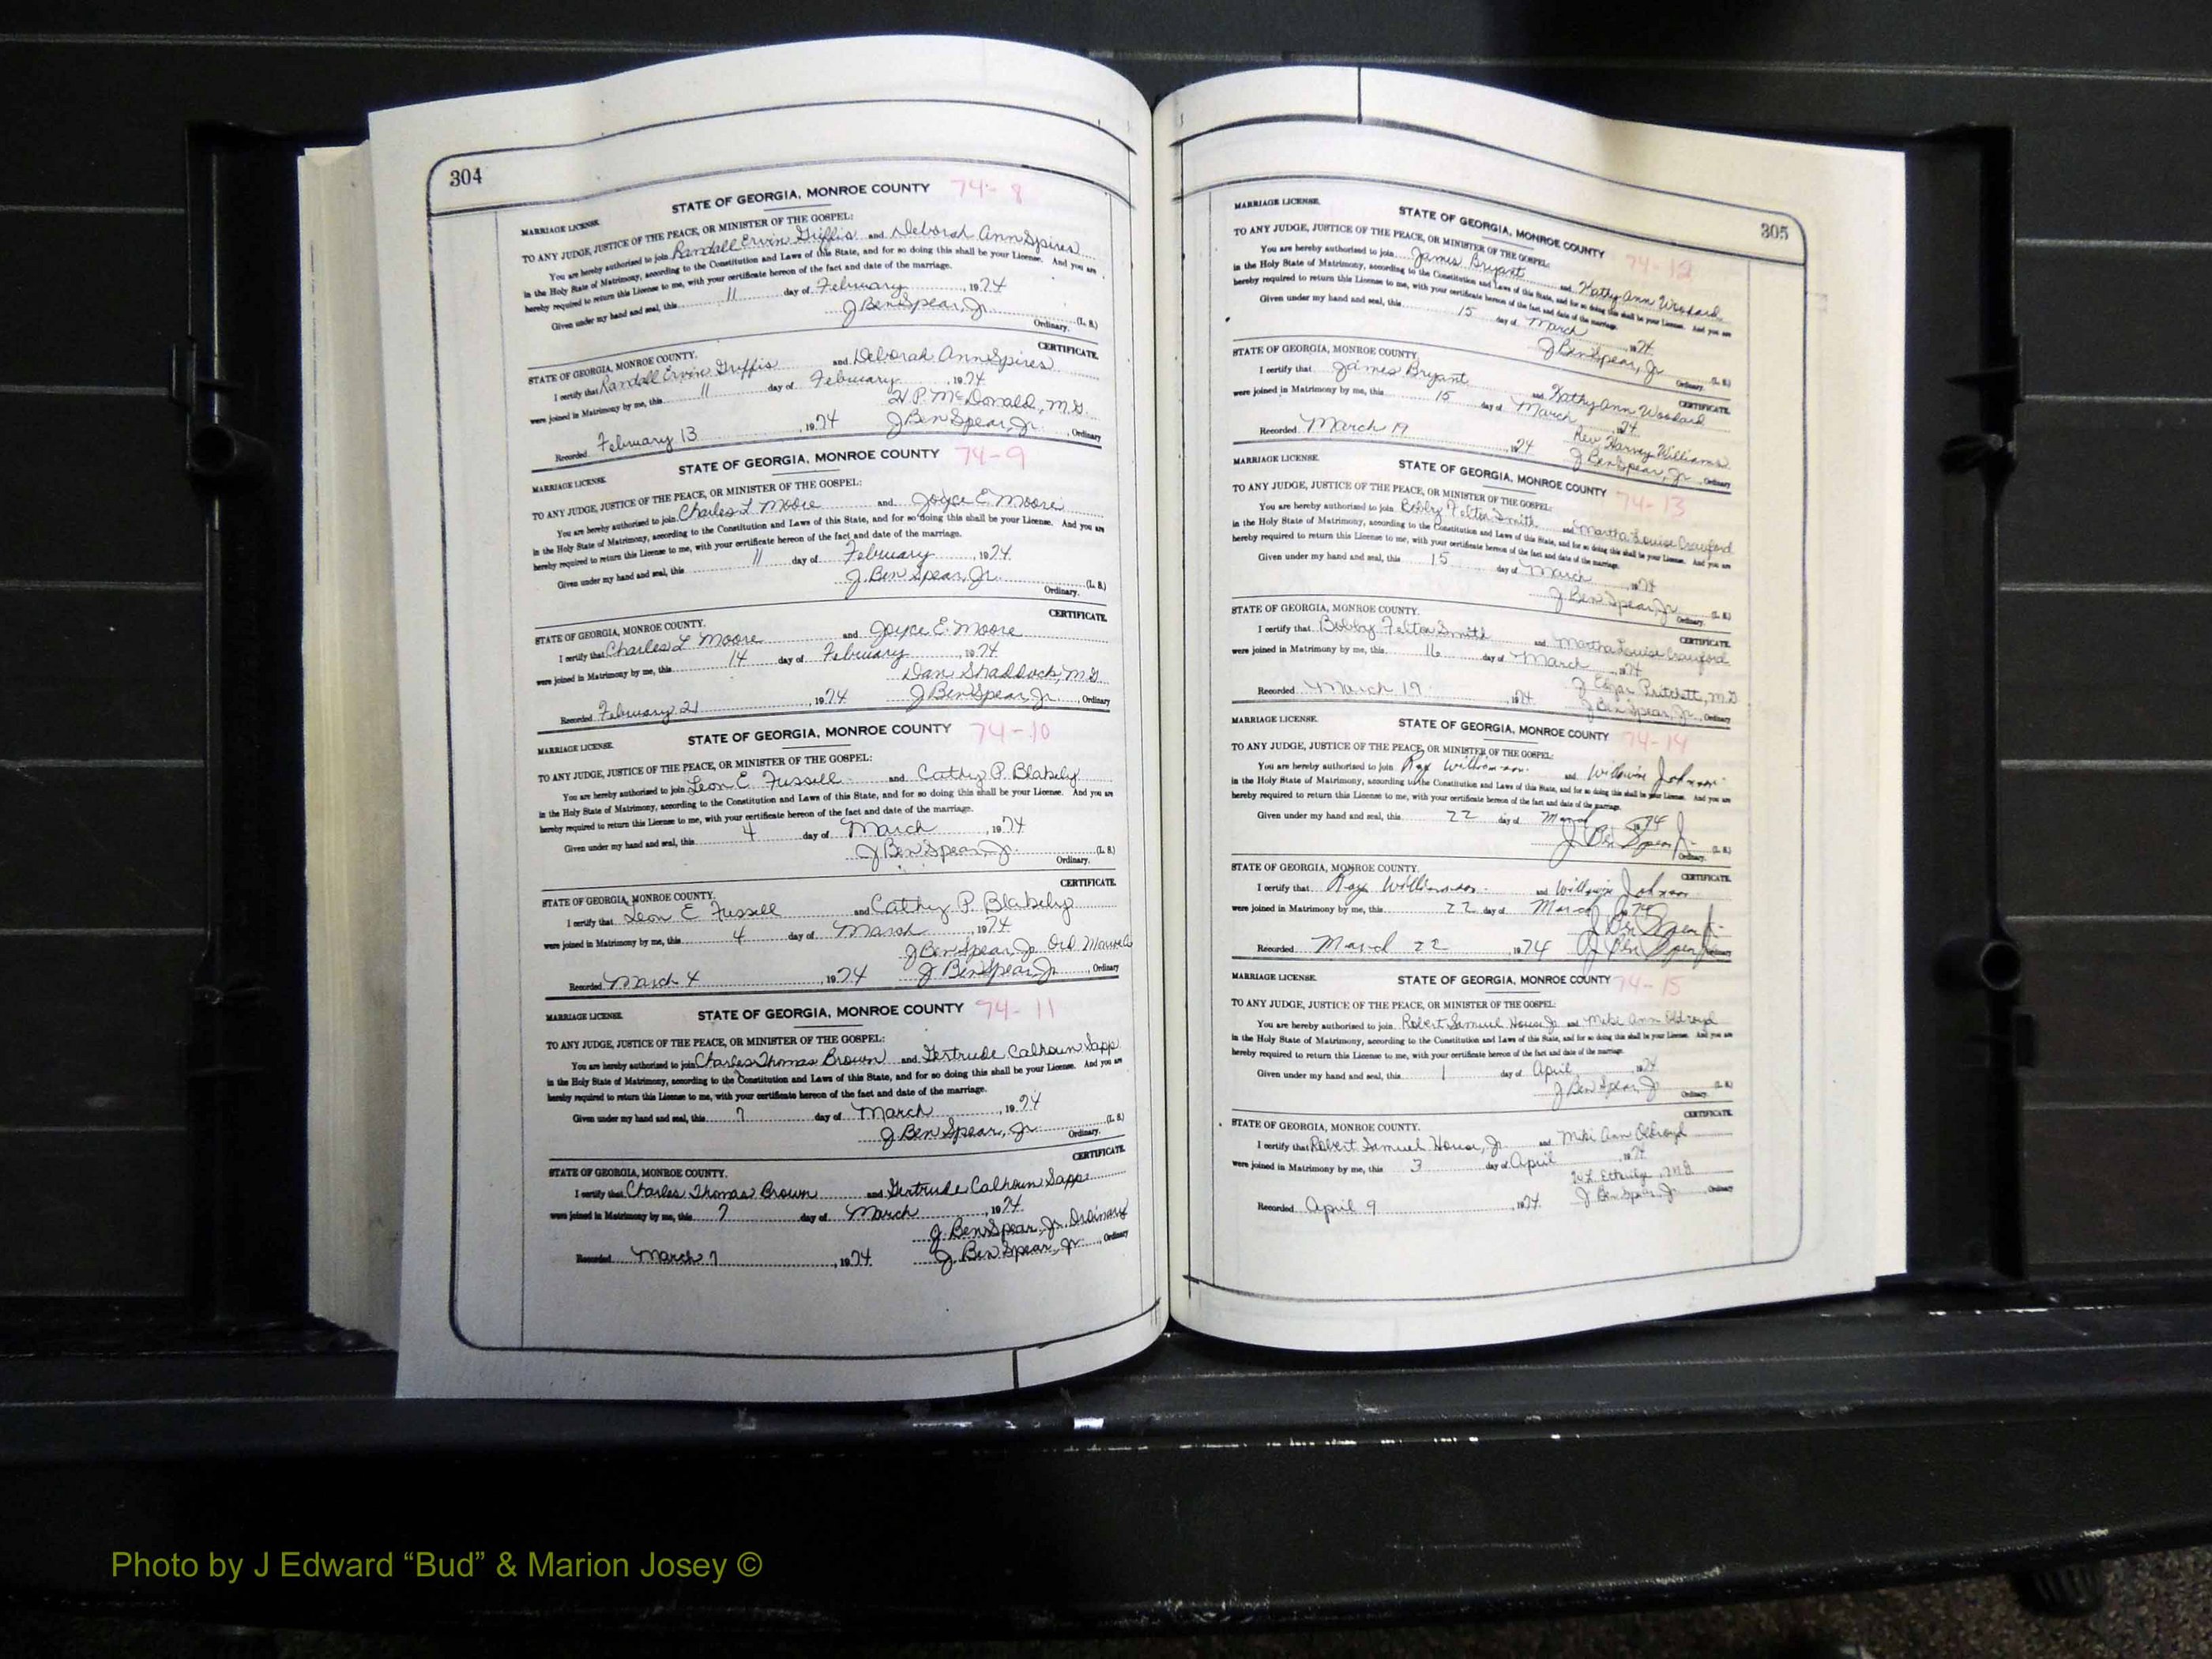 304
STATE OF GEORGIA, MONROE COUNTY 74-8
MARRIAGE LICENSE.
TO ANY JUDGE, JUSTICE OF THE PEACE, OR MINISTER OF THE GOSPEL:
You are hereby authorized to join Randall Ervin Griffis and Deborah Ann Spires
in the Holy State of Matrimony, according to the Constitution and Laws of this State, and for so doing this shall be your License. And you are
hereby required to return this License to me, with your certificate hereon of the fact and date of the marriage.
Given under my hand and seal, this 11 day of February, 1974
J Ben Spear, Jr. (L. S.)
Ordinary.
CERTIFICATE.
STATE OF GEORGIA, MONROE COUNTY.
I certify that Randall Ervin Griffis and Deborah Ann Spires
were joined in Matrimony by me, this 11 day of February, 1974
H. P. McDonald, M.G.
Recorded February 13, 1974 J Ben Spear, Jr., Ordinary
STATE OF GEORGIA, MONROE COUNTY 74-9
MARRIAGE LICENSE.
TO ANY JUDGE, JUSTICE OF THE PEACE, OR MINISTER OF THE GOSPEL:
You are hereby authorized to join Charles L Moore and Joyce E. Moore
in the Holy State of Matrimony, according to the Constitution and Laws of this State, and for so doing this shall be your License. And you are
hereby required to return this License to me, with your certificate hereon of the fact and date of the marriage.
Given under my hand and seal, this 11 day of February, 1974
J. Ben Spear, Jr. (L. S.)
Ordinary.
CERTIFICATE.
STATE OF GEORGIA, MONROE COUNTY.
I certify that Charles L Moore and Joyce E. Moore
were joined in Matrimony by me, this 14 day of February, 1974
Dan Shaddock, M.G.
Recorded February 21, 1974 J Ben Spear, Jr., Ordinary
STATE OF GEORGIA, MONROE COUNTY 74-10
MARRIAGE LICENSE.
TO ANY JUDGE, JUSTICE OF THE PEACE, OR MINISTER OF THE GOSPEL:
You are hereby authorized to join Leon E. Fussell and Cathy P. Blakely
in the Holy State of Matrimony, according to the Constitution and Laws of this State, and for so doing this shall be your License. And you are
hereby required to return this License to me, with your certificate hereon of the fact and date of the marriage.
Given under my hand and seal, this 4 day of March, 1974
J Ben Spear, Jr. (L. S.)
Ordinary.
CERTIFICATE.
STATE OF GEORGIA, MONROE COUNTY.
I certify that Leon E Fussell and Cathy P. Blakely
were joined in Matrimony by me, this 4 day of March, 1974
J Ben Spear, Jr. Ord.
Recorded March 4, 1974 J Ben Spear, Jr., Ordinary
STATE OF GEORGIA, MONROE COUNTY 74-11
MARRIAGE LICENSE.
TO ANY JUDGE, JUSTICE OF THE PEACE, OR MINISTER OF THE GOSPEL:
You are hereby authorized to join Charles Thomas Brown and Gertrude Calhoun Sapp
in the Holy State of Matrimony, according to the Constitution and Laws of this State, and for so doing this shall be your License. And you are
hereby required to return this License to me, with your certificate hereon of the fact and date of the marriage.
Given under my hand and seal, this 7 day of March, 1974
J Ben Spear, Jr. (L. S.)
Ordinary.
CERTIFICATE.
STATE OF GEORGIA, MONROE COUNTY.
I certify that Charles Thomas Brown and Gertrude Calhoun Sapp
were joined in Matrimony by me, this 7 day of March, 1974
J Ben Spear, Jr. Ordinary
Recorded March 7, 1974 J. Ben Spear, Jr., Ordinary
305
STATE OF GEORGIA, MONROE COUNTY 74-12
MARRIAGE LICENSE.
TO ANY JUDGE, JUSTICE OF THE PEACE, OR MINISTER OF THE GOSPEL:
You are hereby authorized to join James Bryant and Kathy Ann Woodard
in the Holy State of Matrimony, according to the Constitution and Laws of this State, and for so doing this shall be your License. And you are
hereby required to return this License to me, with your certificate hereon of the fact and date of the marriage.
Given under my hand and seal, this 15 day of March 1974
J Ben Spear, Jr (L. S.)
Ordinary.
CERTIFICATE.
STATE OF GEORGIA, MONROE COUNTY
I certify that James Bryant and Kathy Ann Woodard
were joined in Matrimony by me, this 15 day of March, 1974
Rev Harvey Williams
Recorded March 19 1974 J Ben Spear, Jr., Ordinary
STATE OF GEORGIA, MONROE COUNTY 74-13
MARRIAGE LICENSE.
TO ANY JUDGE, JUSTICE OF THE PEACE, OR MINISTER OF THE GOSPEL:
You are hereby authorized to join Bobby Felton Smith and Martha Louise Crawford
in the Holy State of Matrimony, according to the Constitution and Laws of this State, and for so doing this shall be your License. And you are
hereby required to return this License to me, with your certificate hereon of the fact and date of the marriage.
Given under my hand and seal, this 15 day of March 1974
J Ben Spear, Jr (L. S.)
Ordinary.
CERTIFICATE.
STATE OF GEORGIA, MONROE COUNTY.
I certify that Bobby Felton Smith and Martha Louise Crawford
were joined in Matrimony by me, this 16 day of March, 1974
J Edgar Pritchett, M.G
Recorded March 19, 1974 J Ben Spear, Jr., Ordinary
STATE OF GEORGIA, MONROE COUNTY 74-14
MARRIAGE LICENSE.
TO ANY JUDGE, JUSTICE OF THE PEACE, OR MINISTER OF THE GOSPEL:
You are hereby authorized to join Roy Williamson and Johnson
in the Holy State of Matrimony, according to the Constitution and Laws of this State, and for so doing this shall be your License. And you are
hereby required to return this License to me, with your certificate hereon of the fact and date of the marriage.
Given under my hand and seal, this 22 day of March 1974
J Ben Spear Jr (L. S.)
Ordinary.
CERTIFICATE.
STATE OF GEORGIA, MONROE COUNTY.
I certify that Roy Williamson and Johnson
were joined in Matrimony by me, this 22 day of March 1974
J Ben Spear Jr
Recorded March 22, 1974 J Ben Spear Jr Ordinary
STATE OF GEORGIA, MONROE COUNTY 74-15
MARRIAGE LICENSE.
TO ANY JUDGE, JUSTICE OF THE PEACE, OR MINISTER OF THE GOSPEL:
You are hereby authorized to join Robert Samuel House Jr and Miki Ann Oldroyd
in the Holy State of Matrimony, according to the Constitution and Laws of this State, and for so doing this shall be your License. And you are
hereby required to return this License to me, with your certificate hereon of the fact and date of the marriage.
Given under my hand and seal, this 1 day of April, 1974
J Ben Spear, Jr (L. S.)
Ordinary.
CERTIFICATE.
STATE OF GEORGIA, MONROE COUNTY.
I certify that Robert Samuel House, Jr. and Miki Ann Oldroyd
were joined in Matrimony by me, this 3 day of April, 1974
W L Ethridge, M.G
Recorded April 9, 1974. J Ben Spear, Jr., Ordinary
Photo by J Edward “Bud” & Marion Josey ©